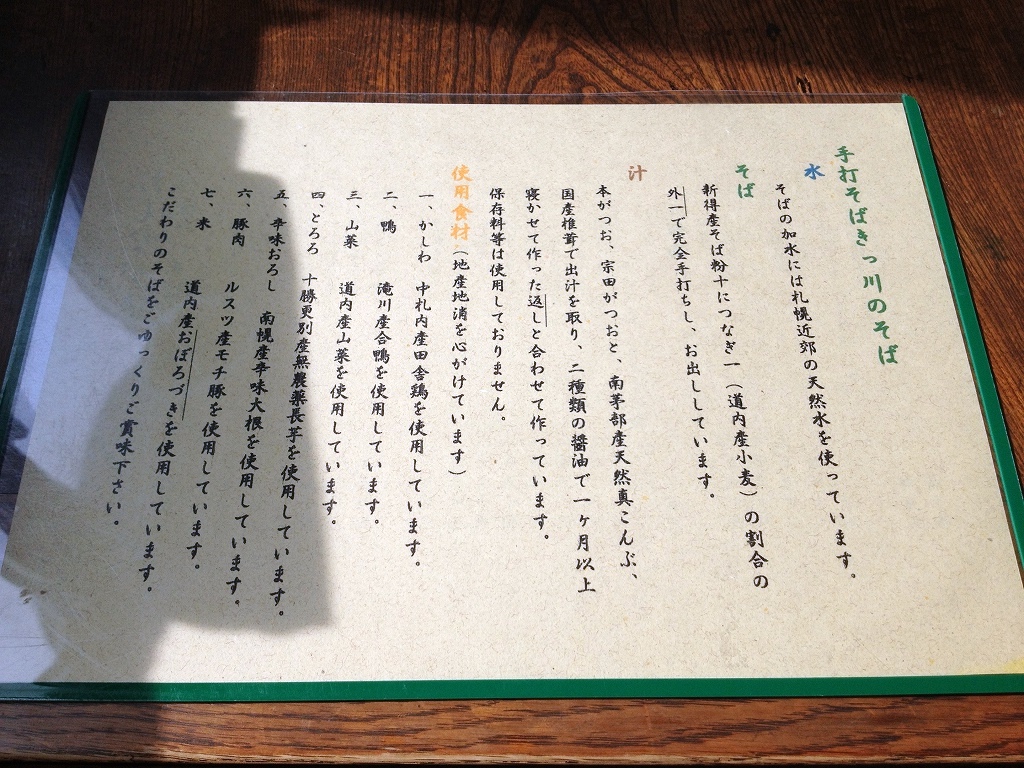 手打そばきっ川のそば
水
そばの加水には札幌近郊の天然水を使っています。
そば
新得産そば粉十につなぎ一（道内産小麦）の割合の
外一で完全手打ちし、お出ししています。
汁
本がつお、宗田がつおと、南茅部産天然真こんぶ、
国産椎茸で出汁を取り、二種類の醤油で一ヶ月以上
寝かせて作った返しと合わせて作っています。
保存料等は使用しておりません。
使用食材（地産地消を心がけています）
一、かしわ　中札内産田舎鶏を使用しています。
二、鴨　滝川産合鴨を使用しています。
三、山菜　道内産山菜を使用しています。
四、とろろ　十勝更別産無農薬長芋を使用しています。
五、辛味おろし　南幌産辛味大根を使用しています。
六、豚肉　ルスツ産モチ豚を使用しています。
七、米　道内産おぼろづきを使用しています。
こだわりのそばをごゆっくりご賞味下さい。